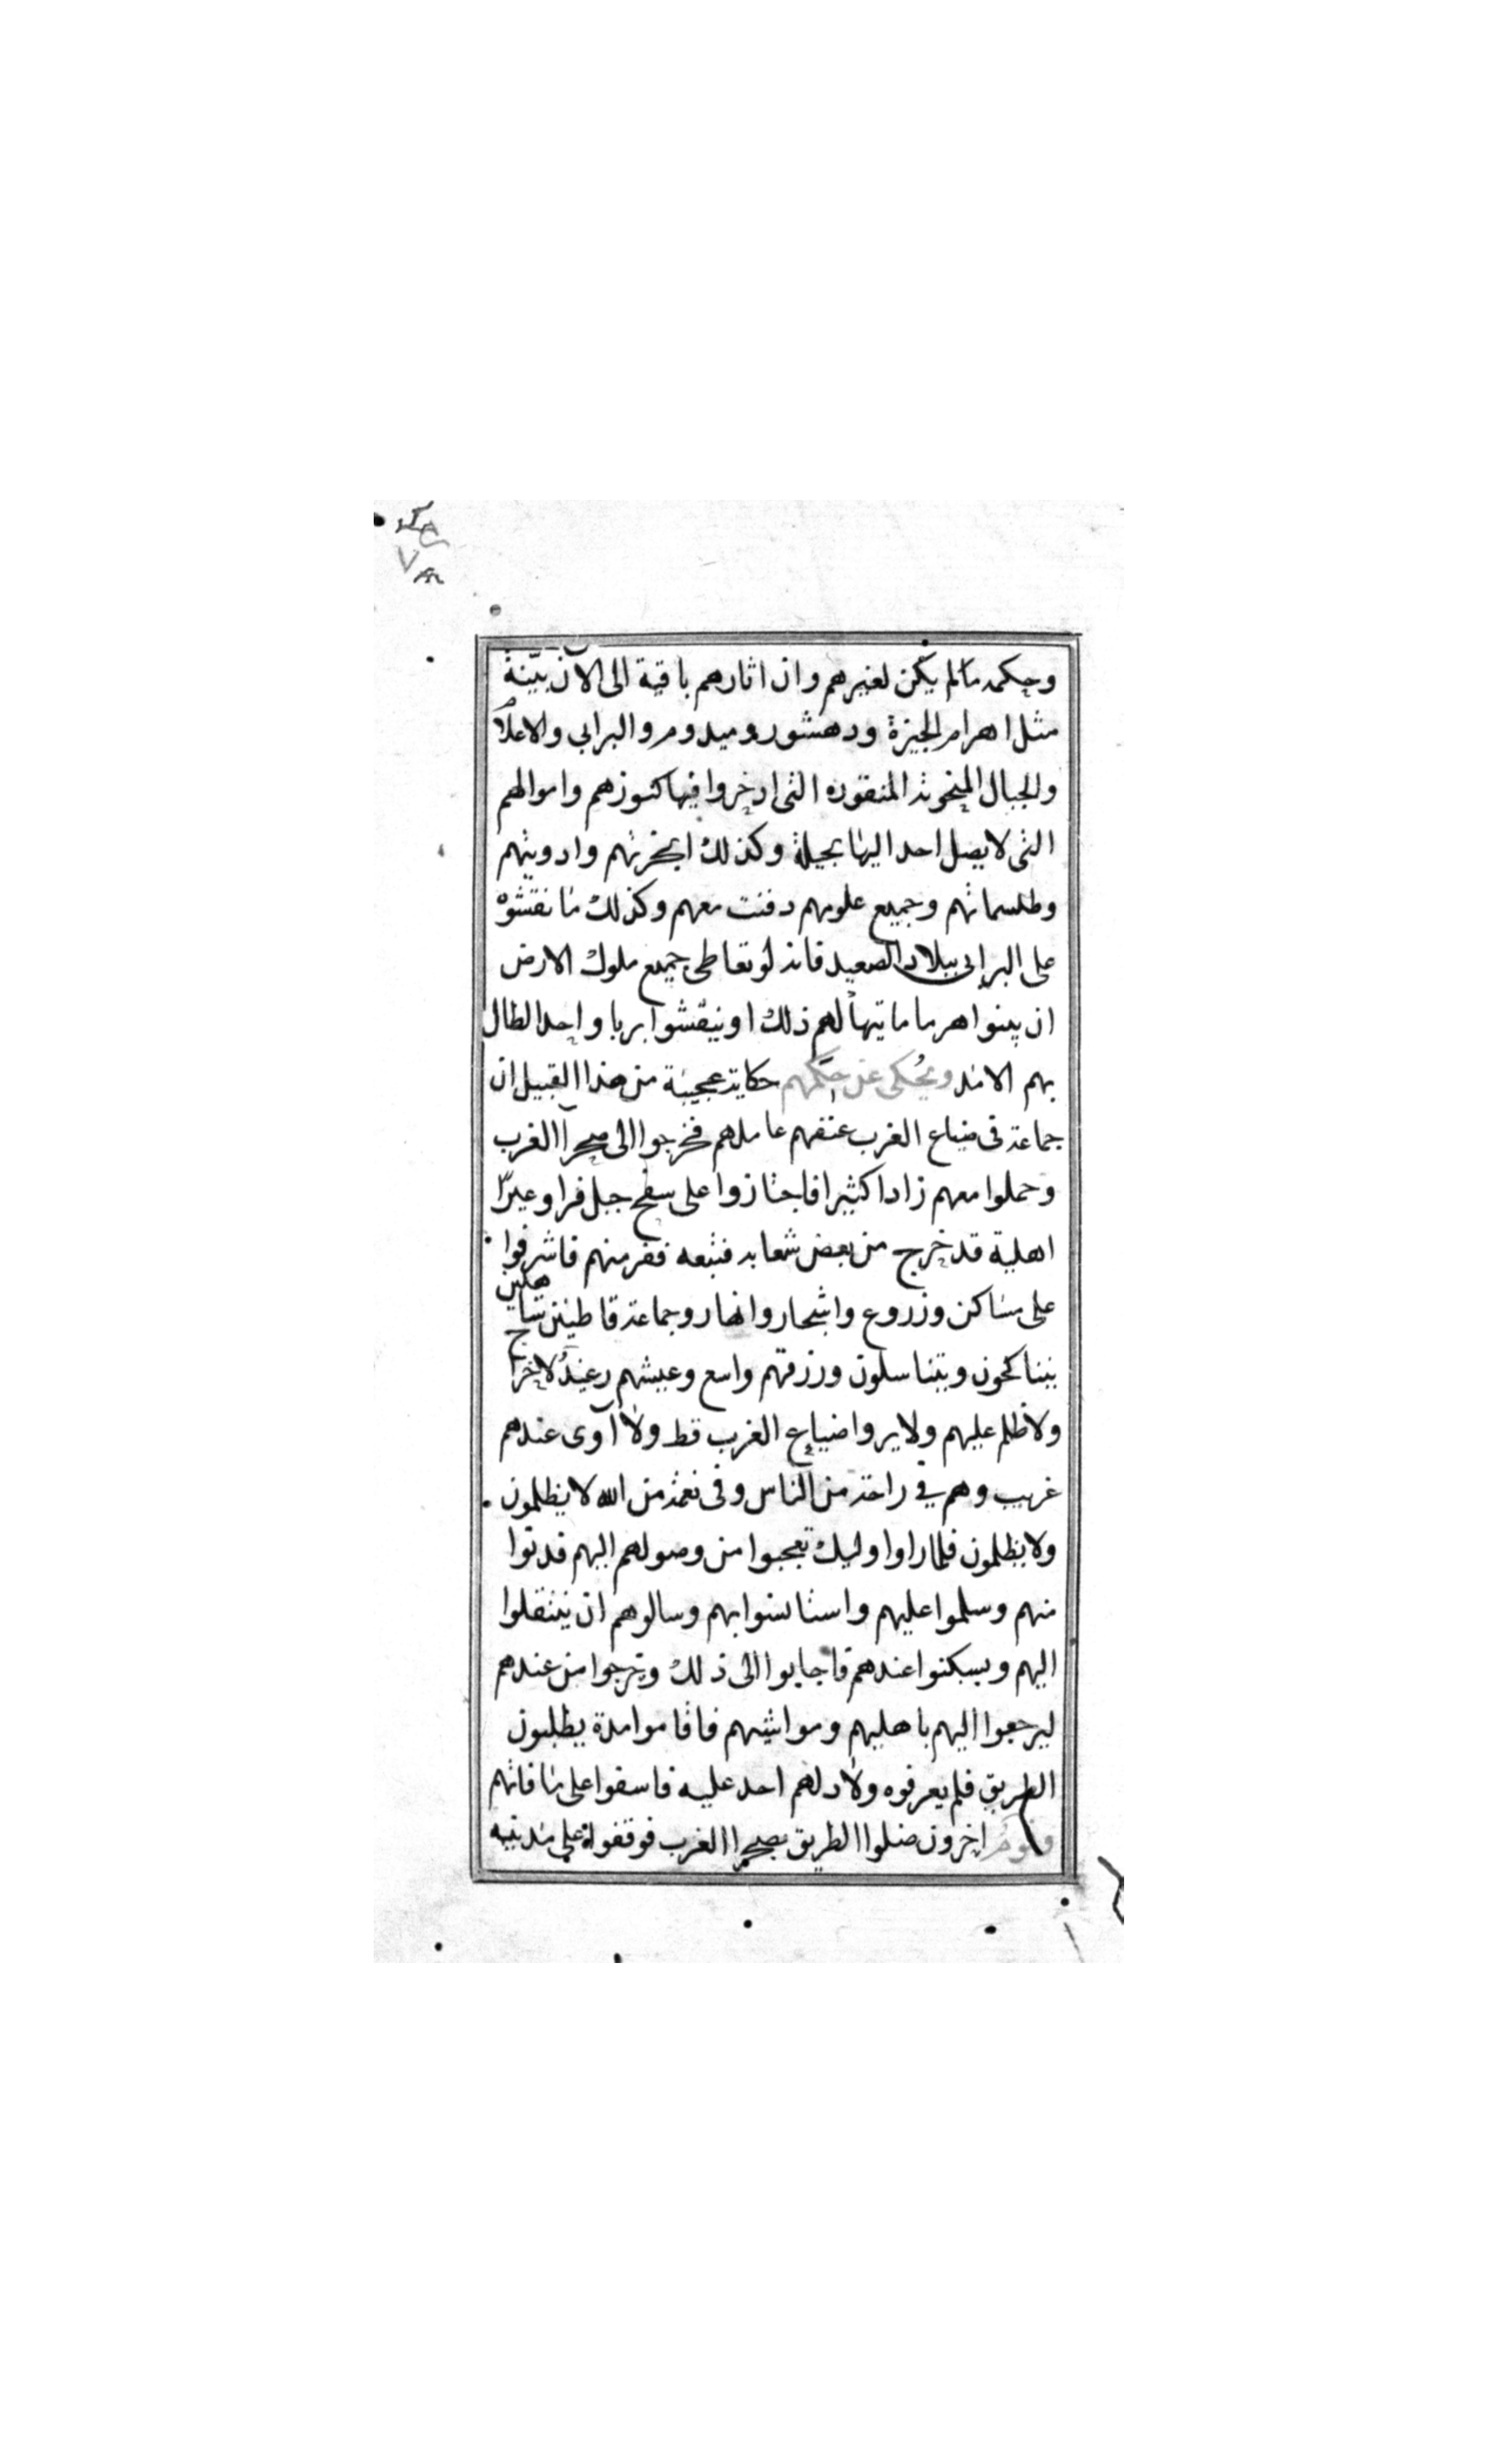 وحكمه مالم يكن لغيرهم وان اثارهم باقية الى الآن بيّنة
مثل اهرام الجيزة ودهشور وميدوم والبرابى والاعلام
والجبال المنحوته المنقوره التى ادخروا فيها كنوزهم واموالهم
التى لا يصل احد اليها بحيلة وكذلك ابخرتهم وادويتهم
وطلسماتهم وجميع علومهم دفنت معهم وكذلك ما نقشوه
على البرابى ببلاد الصعيد فانه لو تعاطى جميع ملوك الارض
ان يبنوا اهرما ما تهيأ لهم ذلك او ينقشوا بربا واحد الطال
بهم الامد ويُحكى عن حِكَمهم حكاية عجيبة من هذا القبيل ان
جماعة فى ضياع الغرب عنفهم عاملهم فخرجوا الى صحرآ الغرب
وحملوا معهم زادا كثيرا فاجتازوا على سفح جبل فراو عيرًا
اهلية قد خرج من بعض شعابه فتبعه ففر منهم فاشرفوا
على مساكن وزروع واشجار وانهار وجماعة قاطنين هلين
يتناكحون ويتناسلون ورزقهم واسع وعيشهم رغيدٌ لا خراج
ولا ظلم عليهم ولا يروا ضياع الغرب قط ولا آوى عندهم
غريب وهم فى راحة من الناس وفى نعمة من الله لا يظلمون
ولا يظلمون فلما راوا اوليك تعجبوا من وصولهم اليهم فدنوا
منهم وسلموا عليهم واستانسوا بهم وسالوهم ان ينتقلوا
اليهم ويسكنوا عندهم فاجابوا الى ذلك وخرجوا من عندهم
ليرجعوا اليهم باهليهم ومواشيهم فاقاموا مدة يطلبون
الطريق فلم يعرفوه ولا دلهم احد عليه فاسفوا على ما فاتهم
وقوم اخرون ضلوا الطريق بصحرا الغرب فوقفوا على مدينه